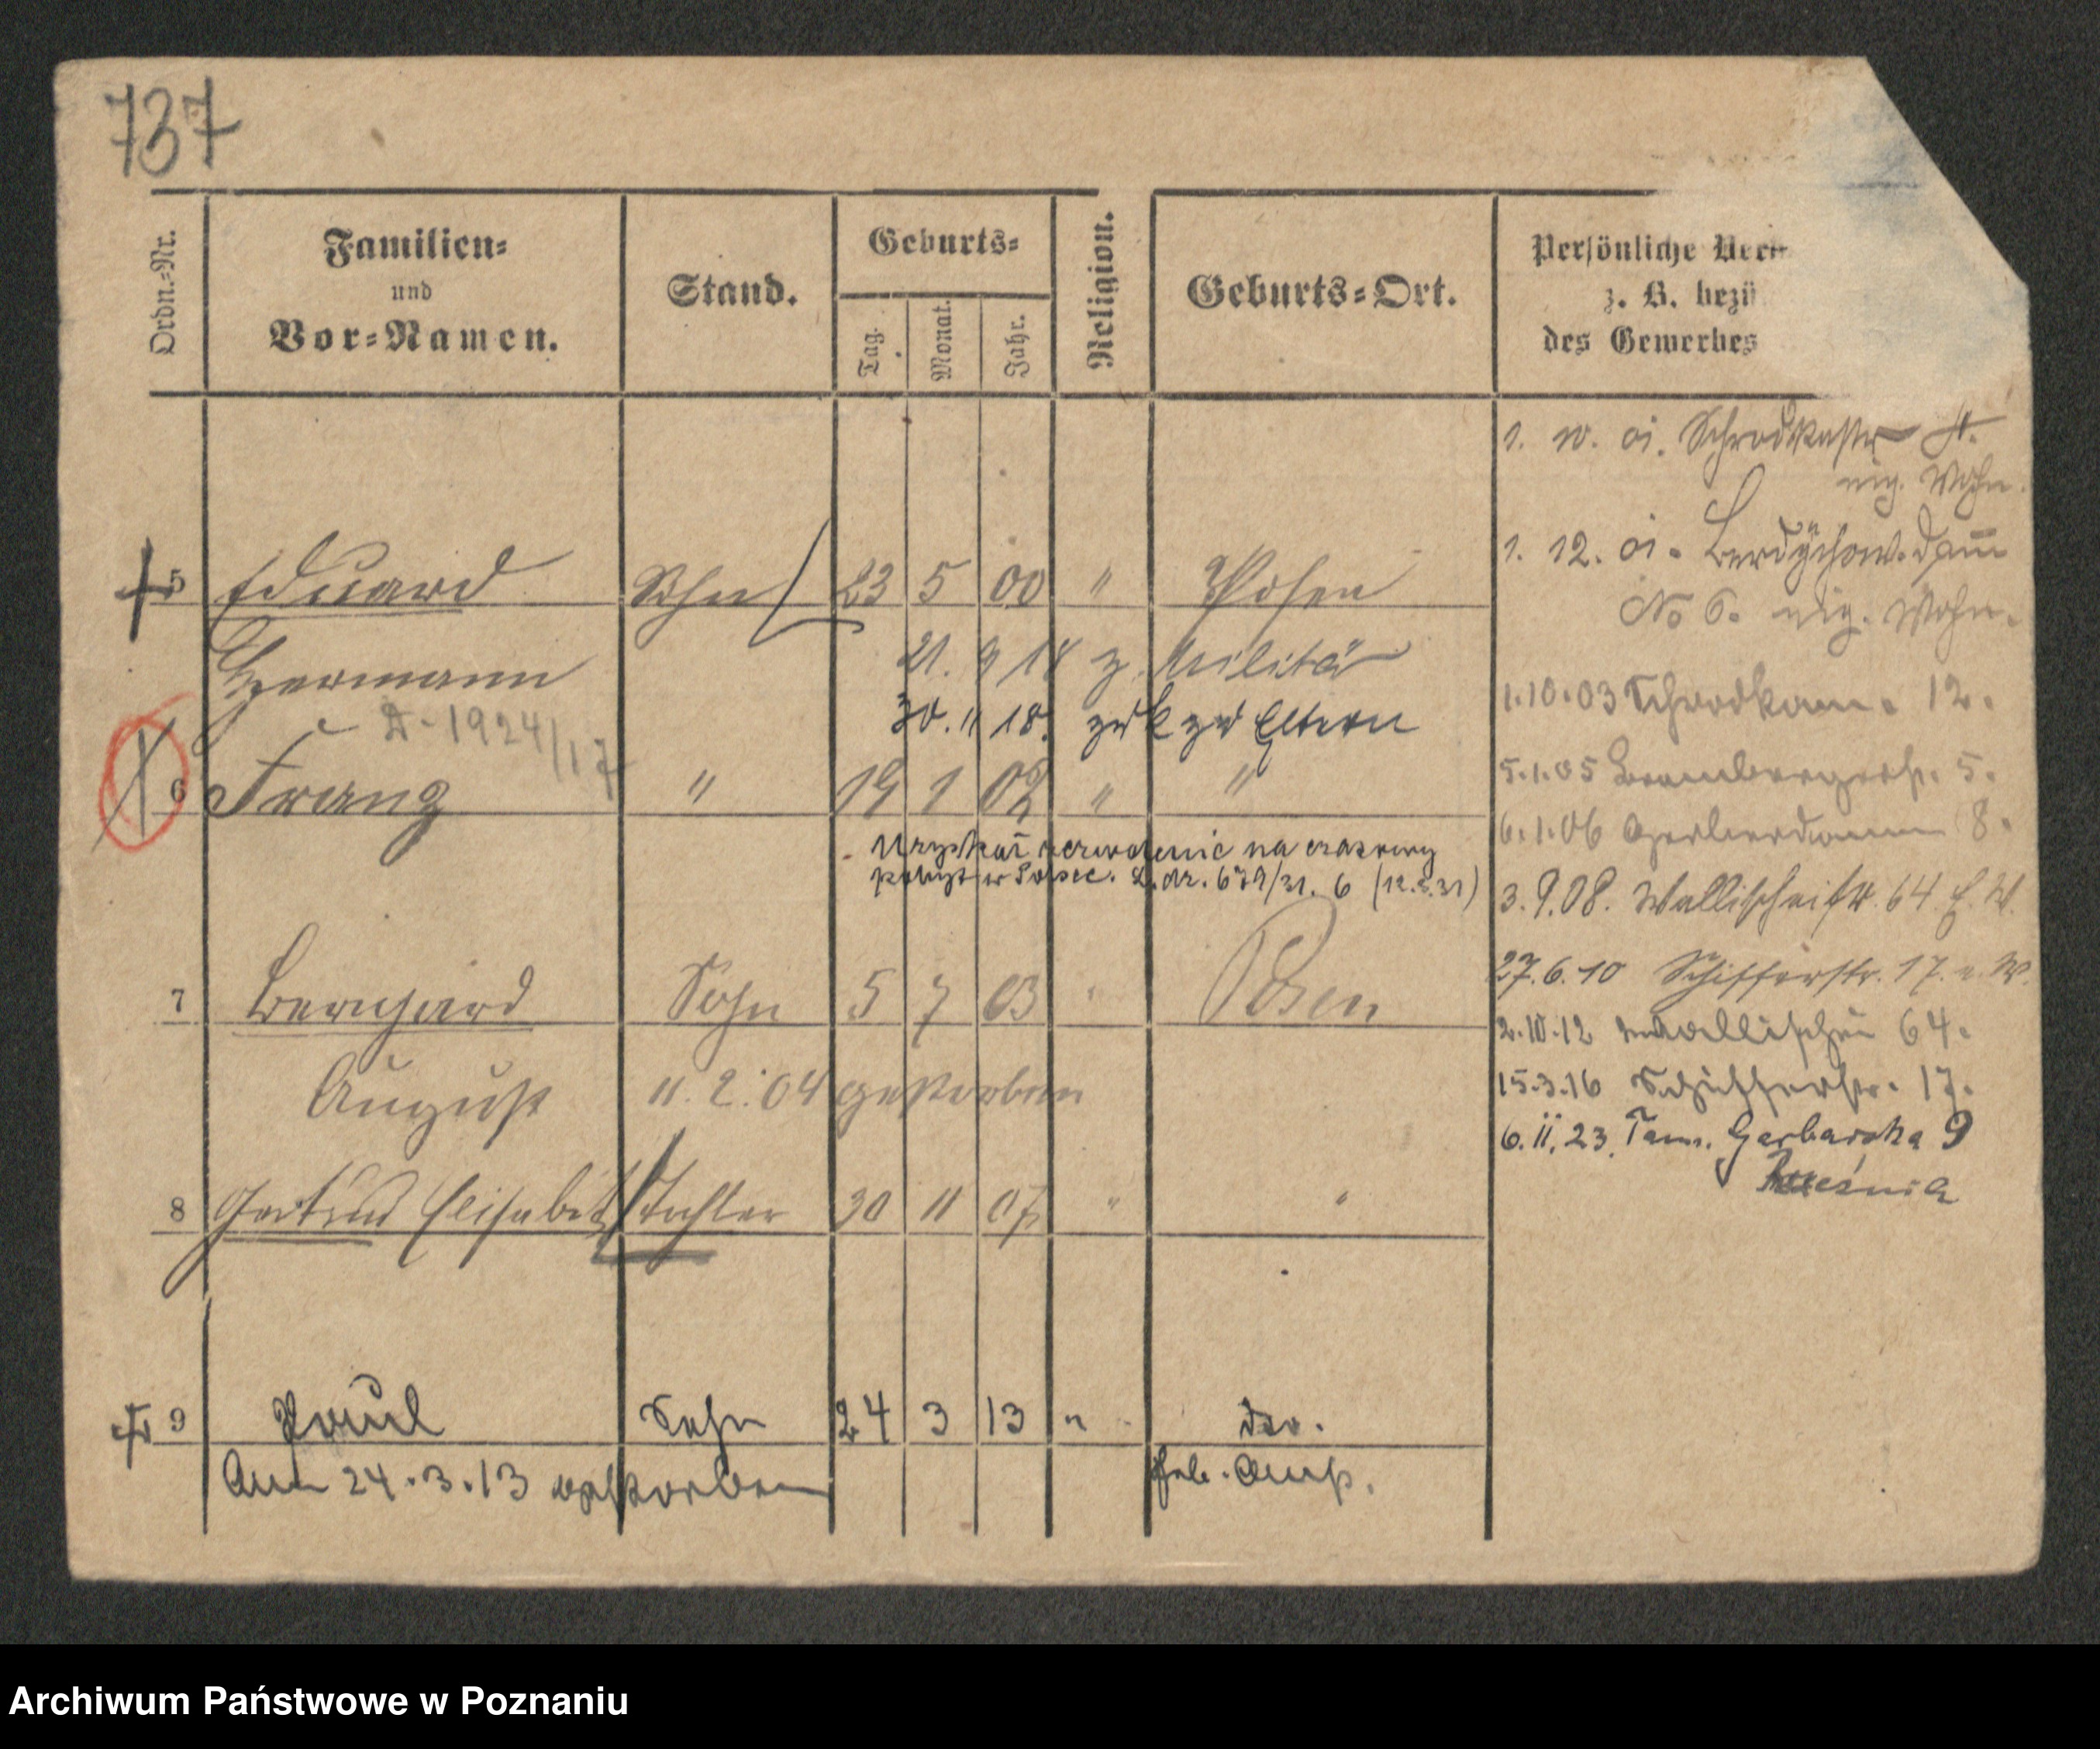 737
Ordn.-Nr.
Familien-
und
Vor-Namen.
Stand.
Geburts-
Tag.
Monat.
Jahr.
Religion.
Geburts-Ort.
Persönliche
z. B. bezü
des Gewerbes
5 Eduard Sohn 23 5 00 " Posen
Hermann
21. 9 18 z. Militär
30. 11 18. zurk zu Eltern
1924/17
6 Franz " 19 1 02 " "
Uzyskał zezwolenie na czasowy
pobyt w Polsce. L.dz. 679/31. 6 (12.5.31)
7 Bernhard Sohn 5 7 03 " Posen
August 11. 2. 04 gestorben
8 Gertrud Elisabet Tochter 30 11 07 " "
9 Paul Sohn 24 3 13 " do.
Am 24.3.13 gestorben
1. 10. 01. Schrodkastr
eig. Wohn.
1. 12. 01. Berdychow. Damm
No 6. eig. Wohn.
1.10.03 Schrodkam. 12.
5.1.05 Brombergerstr. 5.
6.1.06 Gerberdamm 8.
3.9.08. Wallischeistr. 64. E. W.
27.6.10 Schifferstr. 17. e. W.
2.10.12 Wallischei 64.
15.3.16 Schifferstr. 17.
6.11.23. Tam. Garbarska 9
Archiwum Państwowe w Poznaniu